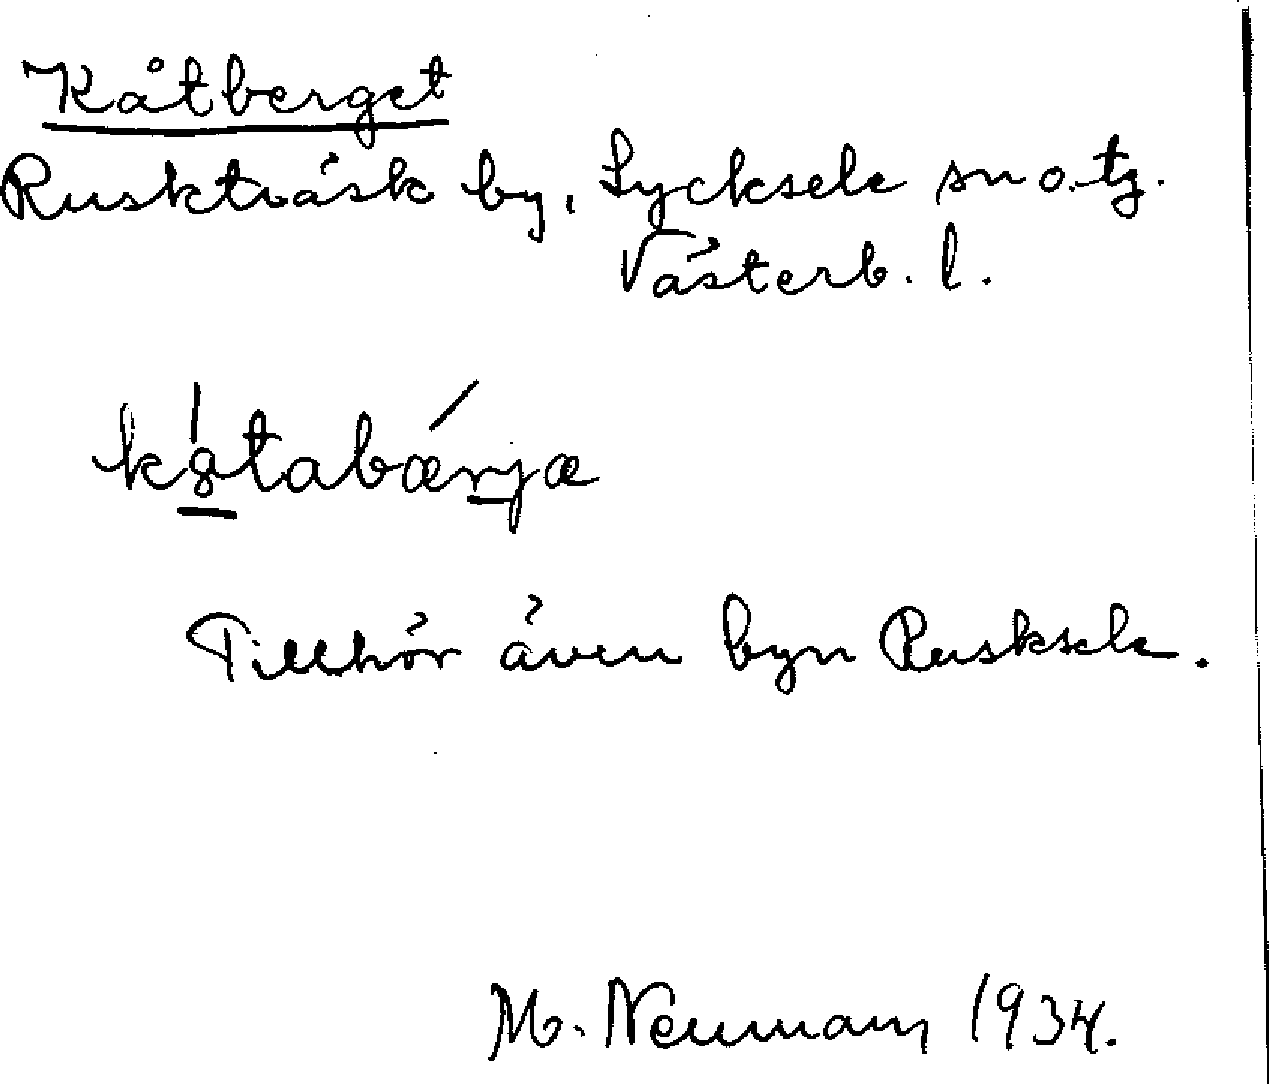 Kåtberget
Ruskträsk by, Lycksele sn o. tg.
Västerb. l.
kȣtabærjæ
Tillhör även byn Rusksele.
M. Neumann 1934.